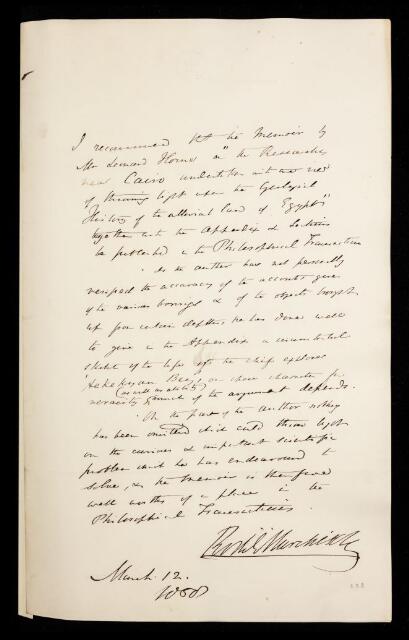 I recommend that the Memoir by
Mr Leonard Horner on "the Researches
near Cairo undertaken with the view
of throwing light upon the Geological
History of the alluvial land of Egypt"
together with the Appendix & Sections
be published in the Philosophical Transactions
As the author has not personally
verified the accuracy of the accounts given
of the various borings & of the objects brought
up from certain depths, he has done well
to give in the Appendix a circumstantial
sketch of the life of the chief explorer
Hekekyan Bey, on whose character for
(as well as ability)
veracity much of the argument depends.
On the part of the author nothing
has been omitted which could throw light
on the curious & important scientific
problem which he has endeavoured to
solve, & the Memoir is therefore
well worthy of a place in the
Philosophical Transactions.
Rod. I. Murchison
March 12.
1858